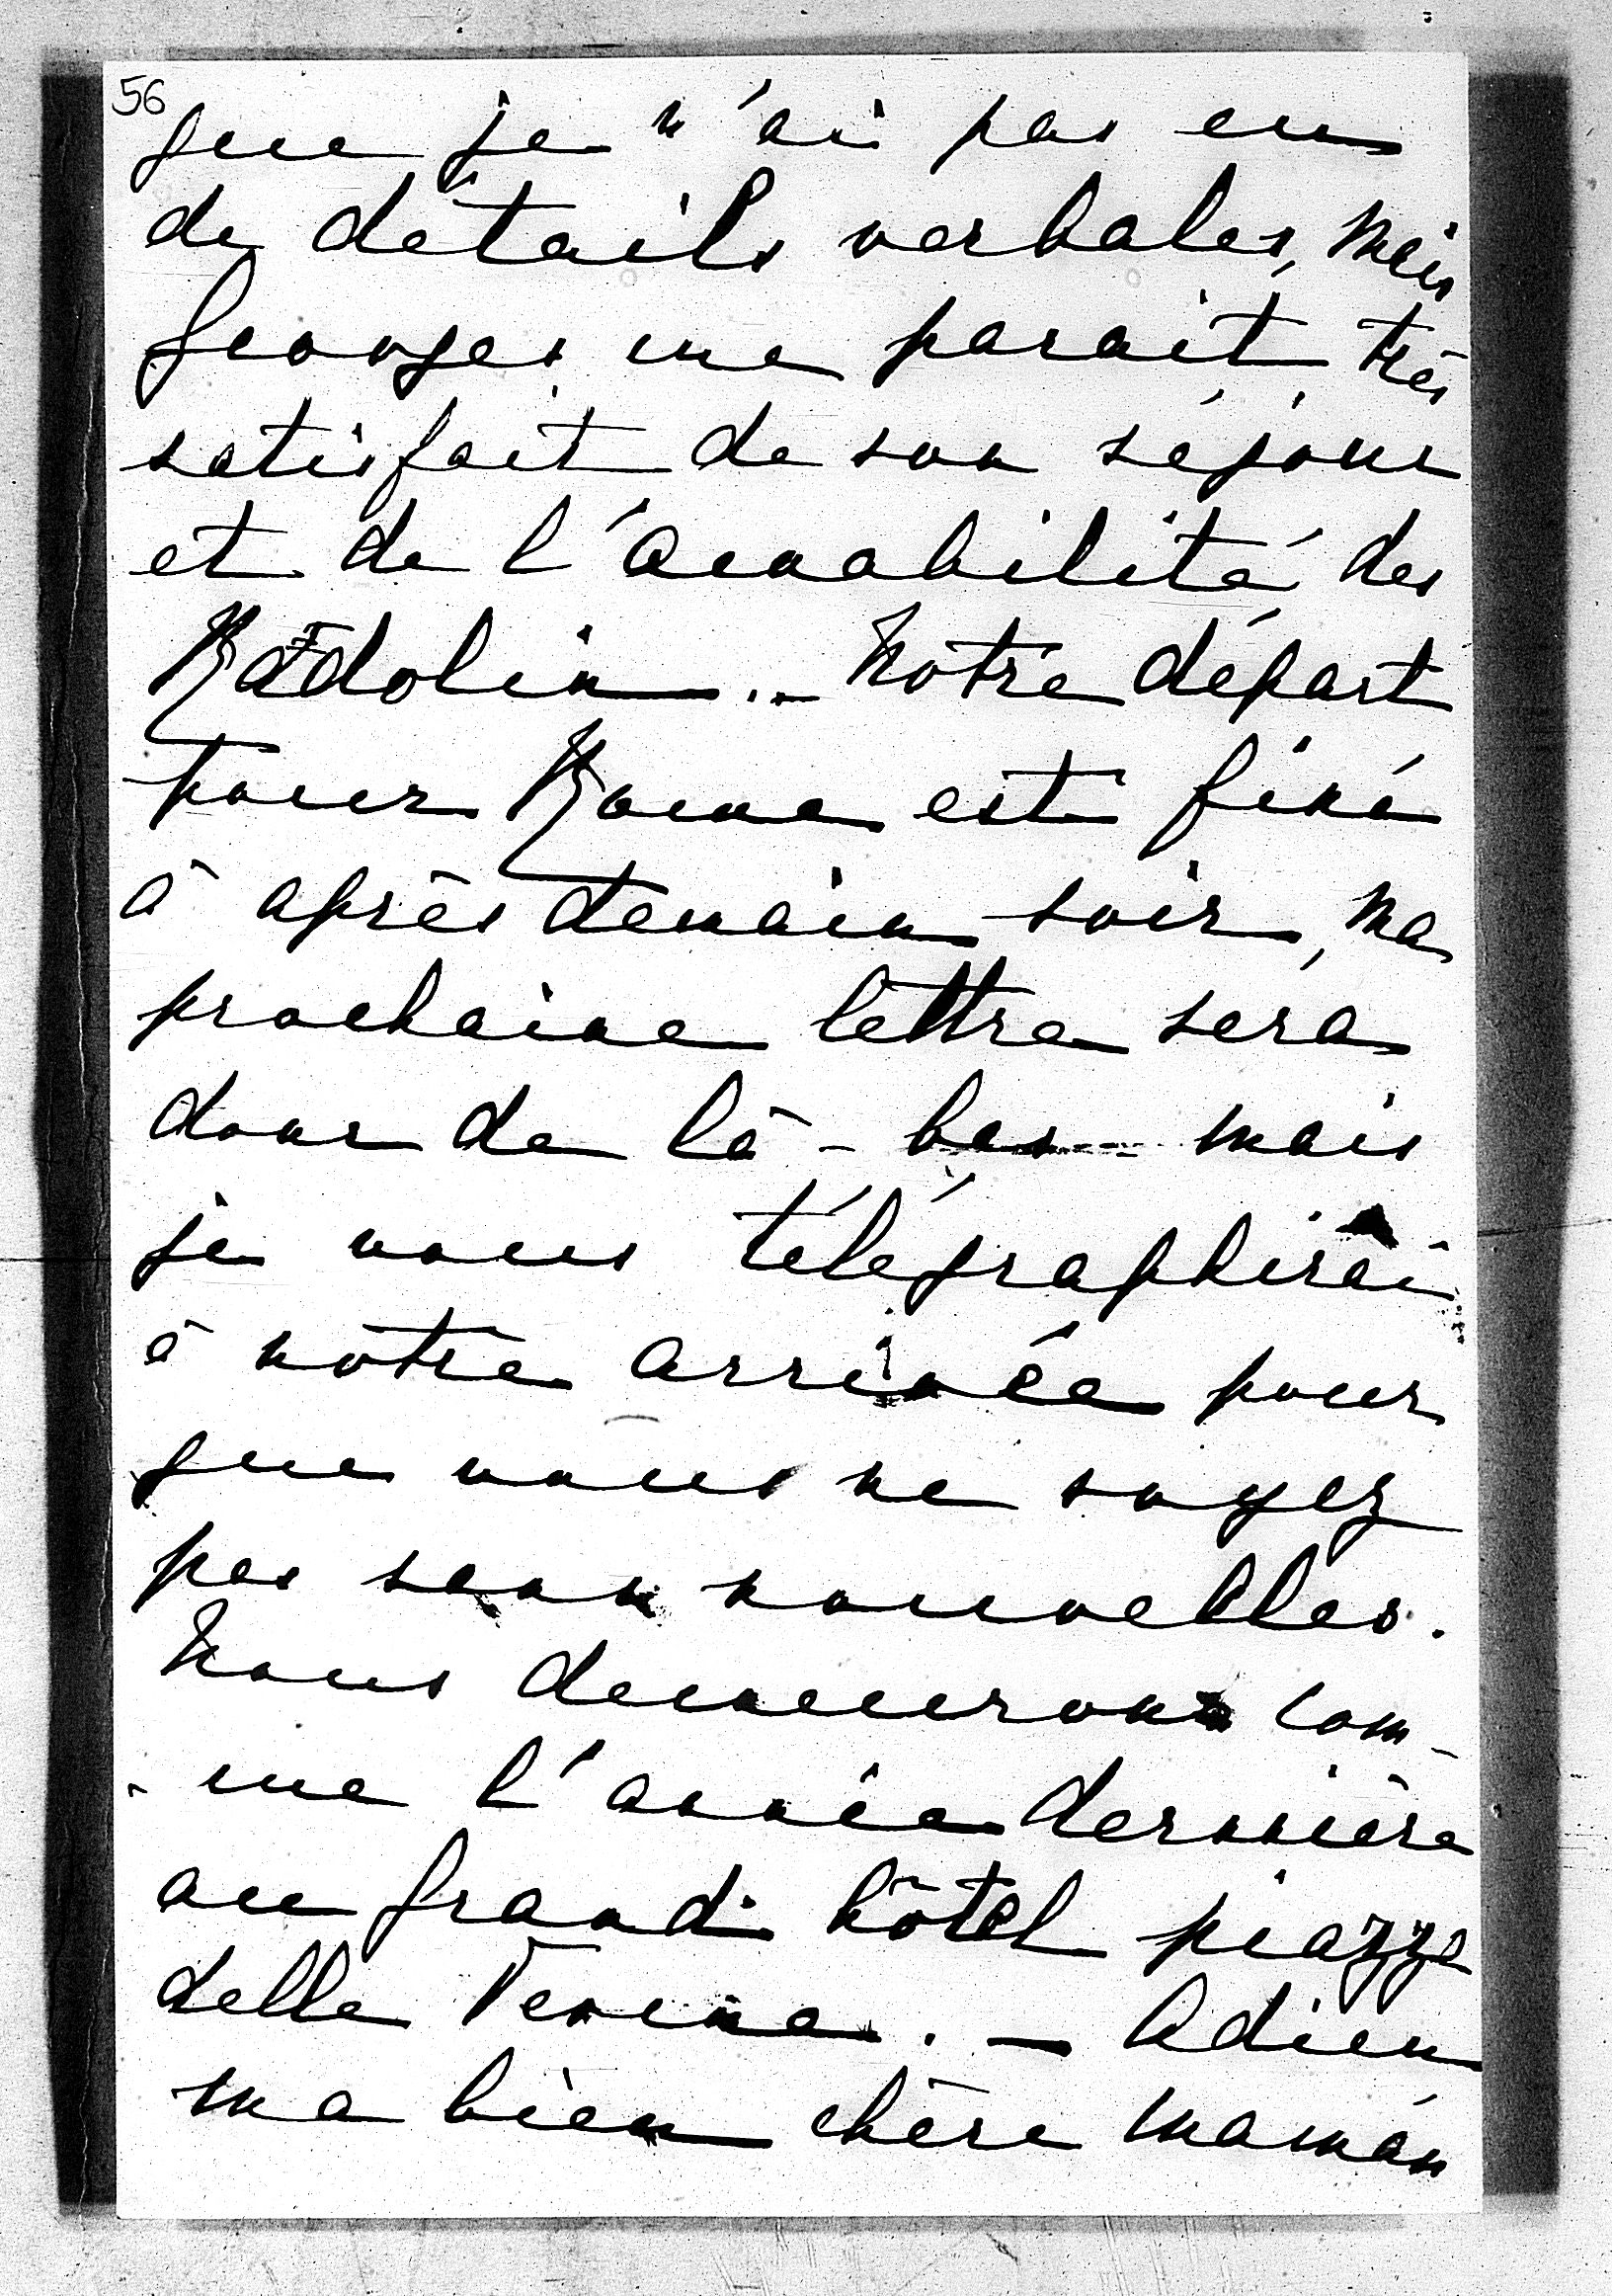 56
que je n'ai pas eu
de détails verbales, mais
Georges me parait très
satisfait de son séjour
et de l'amabilité des
Radolin. - Notre départ
pour Rome est fixé
à après demain soir, ma
prochaine lettre sera
donc de là-bas mais
je vous télégraphirai
à notre arrivée pour
que vous ne soyez
pas sans nouvelles.
Nous demeurons com-
-me l'année dernière
au grand hôtel piazza
delle Terme. - Adieu
ma bien chère maman